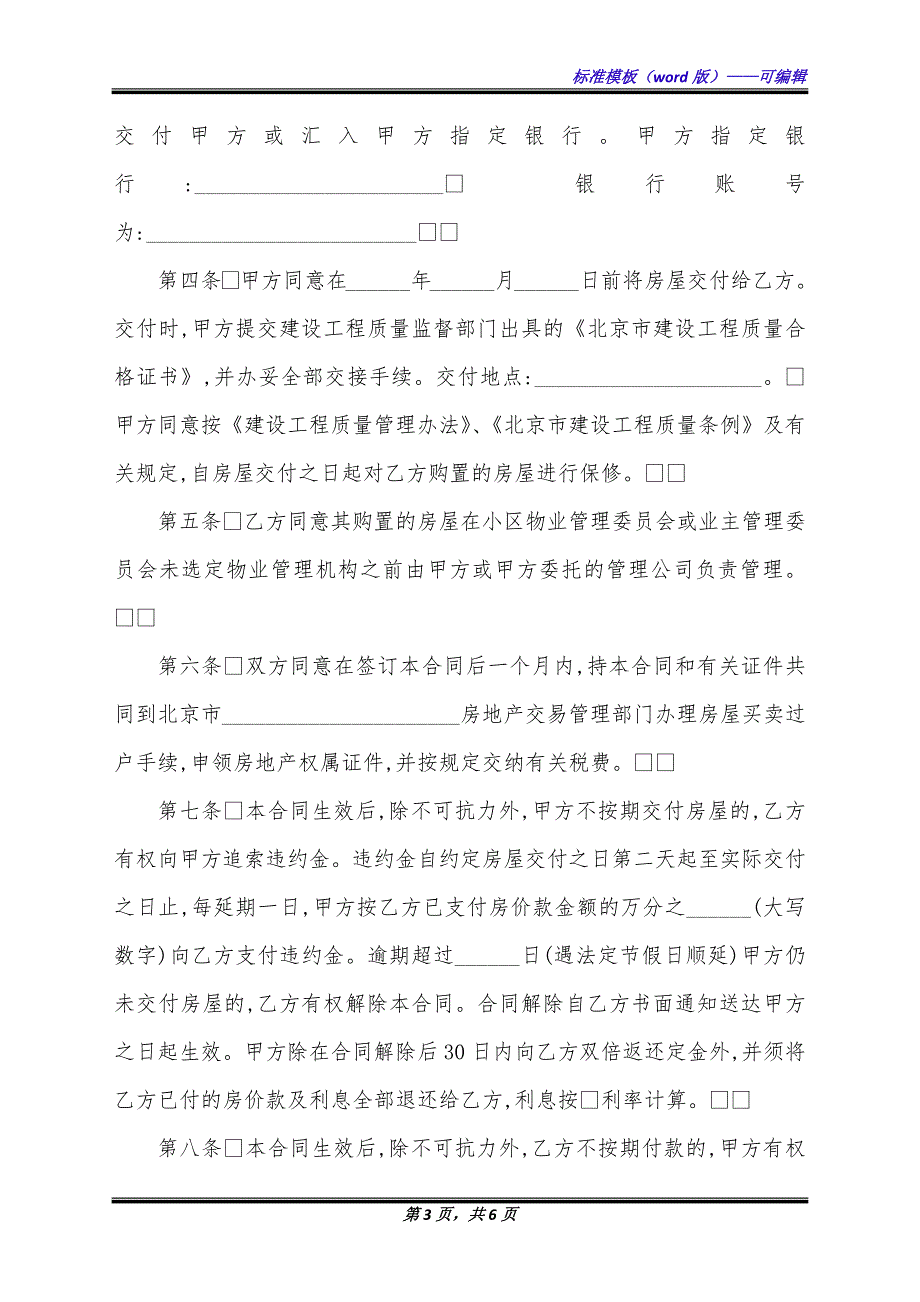 标准模板（word 版）——可编辑
交付甲方或汇入甲方指定银行。甲方指定银
行:_______________________□ 银行账号
为:_________________________□□
第四条□甲方同意在______年______月______日前将房屋交付给乙方。
交付时,甲方提交建设工程质量监督部门出具的《北京市建设工程质量合
格证书》,并办妥全部交接手续。交付地点:_____________________。□
甲方同意按《建设工程质量管理办法》、《北京市建设工程质量条例》及有
关规定,自房屋交付之日起对乙方购置的房屋进行保修。□□
第五条□乙方同意其购置的房屋在小区物业管理委员会或业主管理委
员会未选定物业管理机构之前由甲方或甲方委托的管理公司负责管理。
□□
第六条□双方同意在签订本合同后一个月内,持本合同和有关证件共
同到北京市______________________房地产交易管理部门办理房屋买卖过
户手续,申领房地产权属证件,并按规定交纳有关税费。□□
第七条□本合同生效后,除不可抗力外,甲方不按期交付房屋的,乙方
有权向甲方追索违约金。违约金自约定房屋交付之日第二天起至实际交付
之日止,每延期一日,甲方按乙方已支付房价款金额的万分之______(大写
数字)向乙方支付违约金。逾期超过______日(遇法定节假日顺延)甲方仍
未交付房屋的,乙方有权解除本合同。合同解除自乙方书面通知送达甲方
之日起生效。甲方除在合同解除后 30 日内向乙方双倍返还定金外,并须将
乙方已付的房价款及利息全部退还给乙方,利息按□利率计算。□□
第八条□本合同生效后,除不可抗力外,乙方不按期付款的,甲方有权
第 3 页，共 6 页